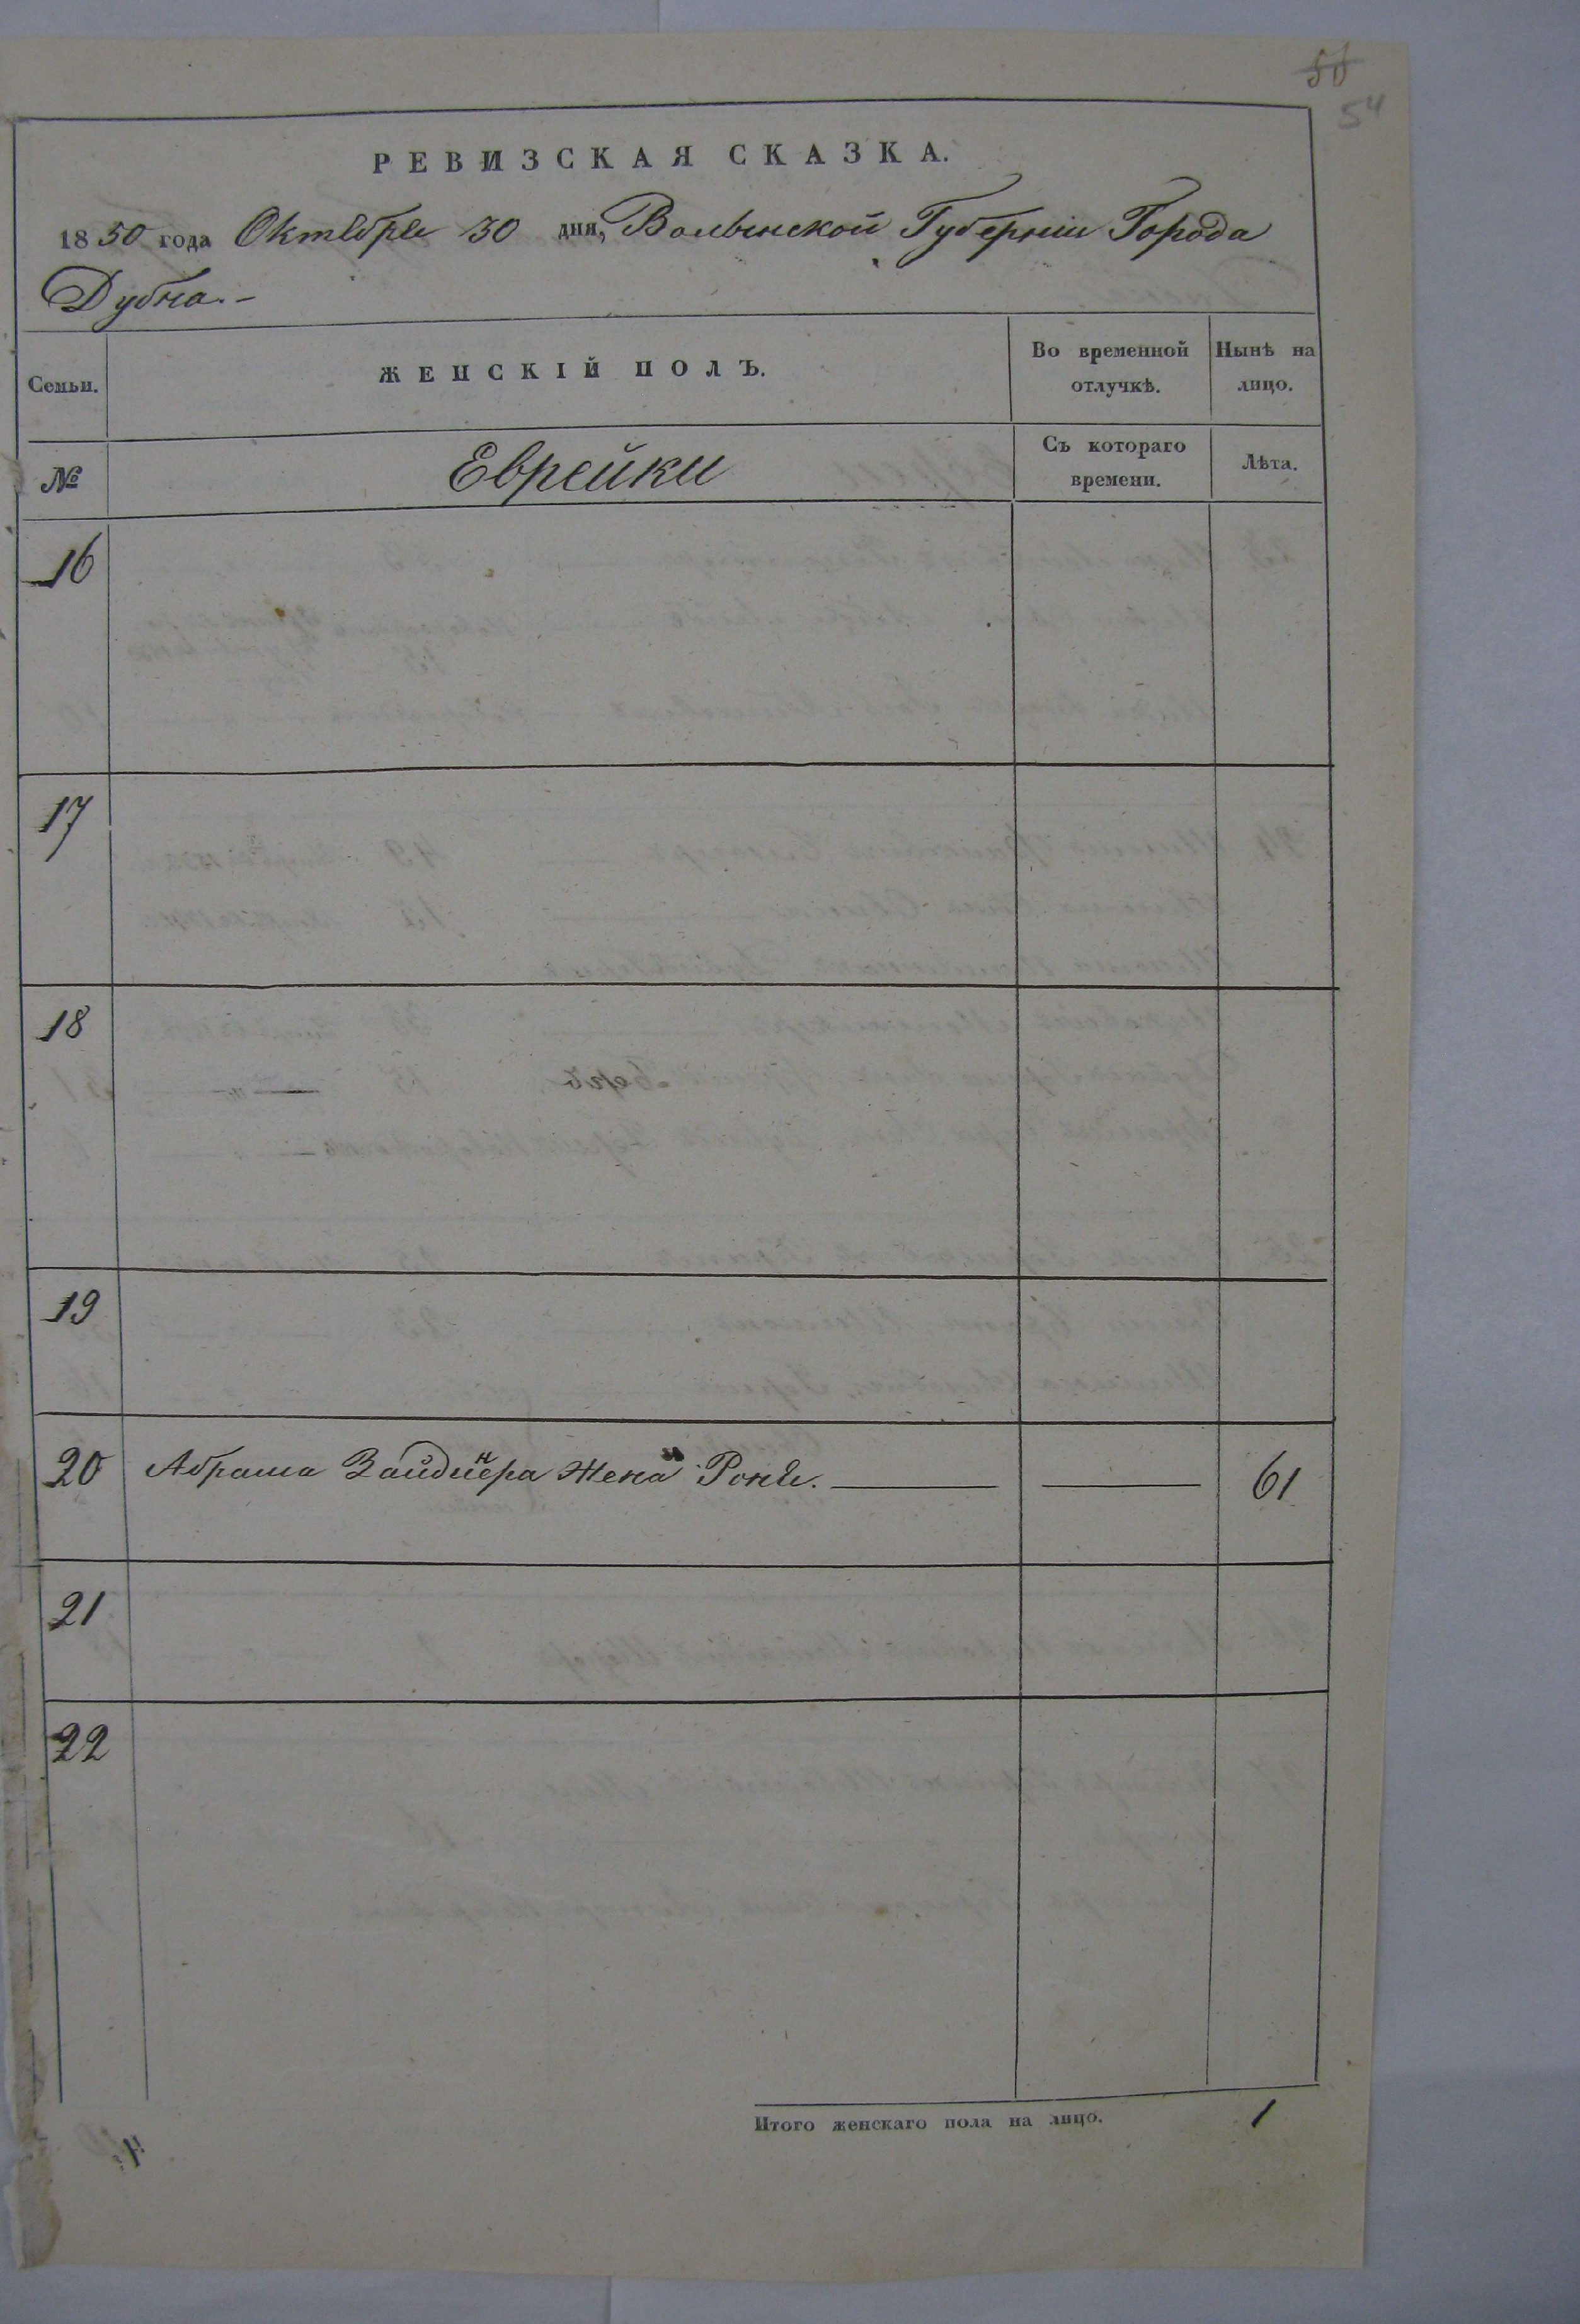 50
54
РЕВИЗСКАЯ СКАЗКА.
1850 года Октября 30 дня, Волынской Губерніи Города
Дубна.-
Семьи.
ЖЕНСКІЙ ПОЛЪ.
Во временной отлучкѣ.
Нынѣ на лицо.
№
Еврейки
Съ котораго времени.
Лѣта.
16
17
18
19
20 Абрама Зайднера Жена Роня. 61
21
22
Итого женскаго пола на лицо. 1